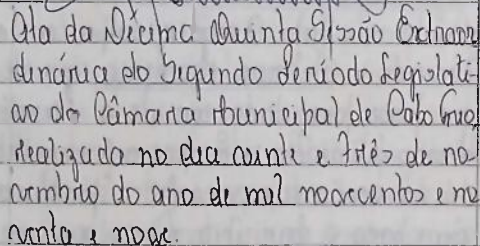 Ata da Décima Quinta Sessão Extraor
dinária do Segundo Período Legislati-
vo da Câmara Municipal de Cabo Frio,
realizada no dia vinte e três de no-
vembro do ano de mil novecentos e no
venta e nove.